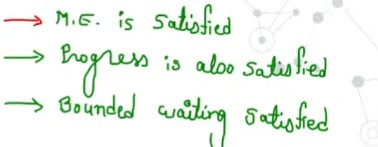 → M.E. is satisfied
→ Progress is also satisfied
→ Bounded waiting satisfied